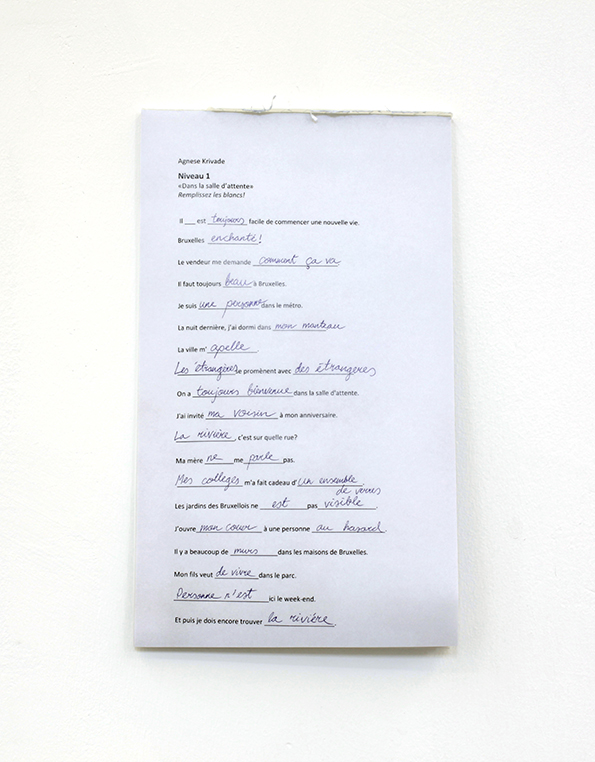 Agnese Krivade
Niveau 1
«Dans la salle d'attente»
Remplissez les blancs!
Il ___ est toujours facile de commencer une nouvelle vie.
Bruxelles enchanté!
Le vendeur me demande comment ça va
Il faut toujours beau à Bruxelles.
Je suis une personne dans le métro.
La nuit dernière, j'ai dormi dans mon manteau
La ville m' apelle.
Les étrangères se promènent avec des étrangeres
On a toujours bienvenue dans la salle d'attente.
J'ai invité ma voisin à mon anniversaire.
La rivière, c'est sur quelle rue?
Ma mère ne me parle pas.
Mes colleges m'a fait cadeau d'un ensemble de vivres
Les jardins des Bruxellois ne est pas visible.
J'ouvre mon cour à une personne au hasard.
Il y a beaucoup de murs dans les maisons de Bruxelles.
Mon fils veut de vivre dans le parc.
Personne n'est ici le week-end.
Et puis je dois encore trouver la rivière.